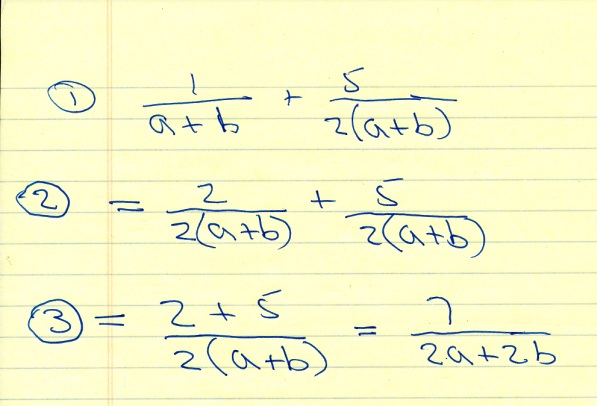 ① 1/(a+b) + 5/(2(a+b))
② = 2/(2(a+b)) + 5/(2(a+b))
③ = (2+5)/(2(a+b)) = 7/(2a+2b)